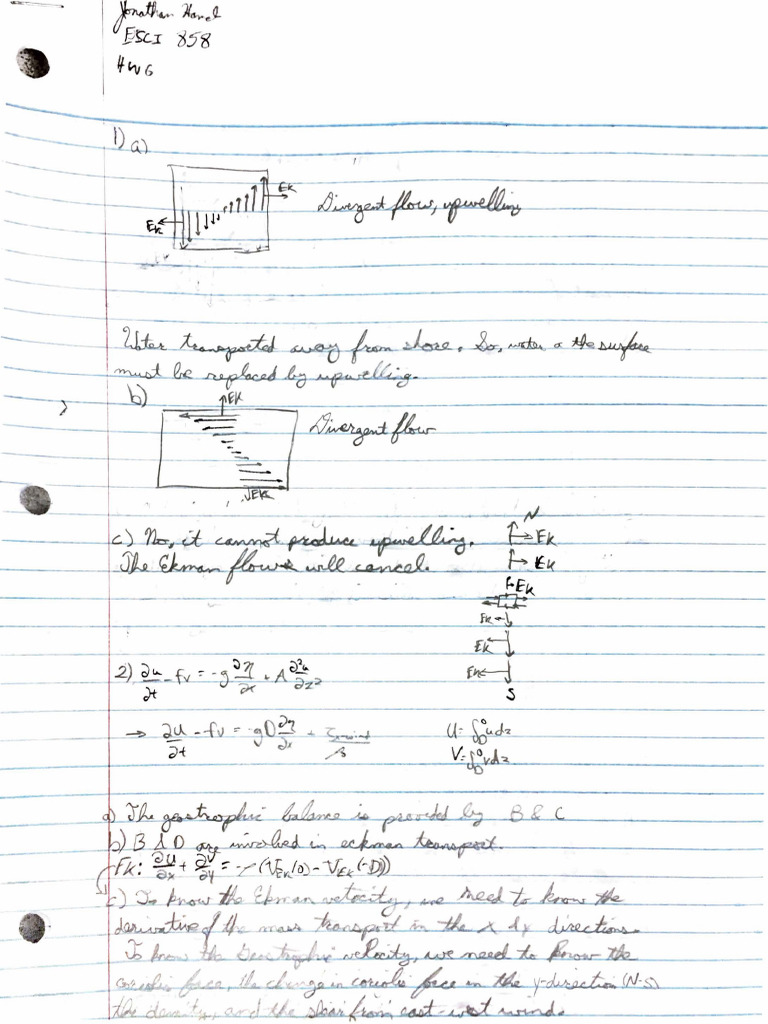 Jonathan
ESCI 858
HW 6
1) a)
EK
EK
Divergent flow, upwelling
Water transported away from shore. So, water @ the surface
must be replaced by upwelling.
b)
EK
Divergent flow
EK
c) No, it cannot produce upwelling.
The Ekman flows will cancel.
N
EK
EK
EK
EK
EK
EK
S
2) ∂u/∂t - fv = -g ∂η/∂x + A ∂²u/∂z²
→ ∂U/∂t - fV = -gD ∂η/∂x +
U = ∫ u dz
V = ∫ v dz
a) The geostrophic balance is provided by B & C
b) B & D are involved in eckman transport.
Ek: ∂U/∂x + ∂V/∂y = -(V_EK(0) - V_EK(-D))
c) To know the Ekman velocity, we need to know the
derivative of the mass transport in the x & y directions.
To know the Geostrophic velocity, we need to know the
coriolis force, the change in coriolis force in the y-direction (N-S)
the density, and the shear from east-west winds.